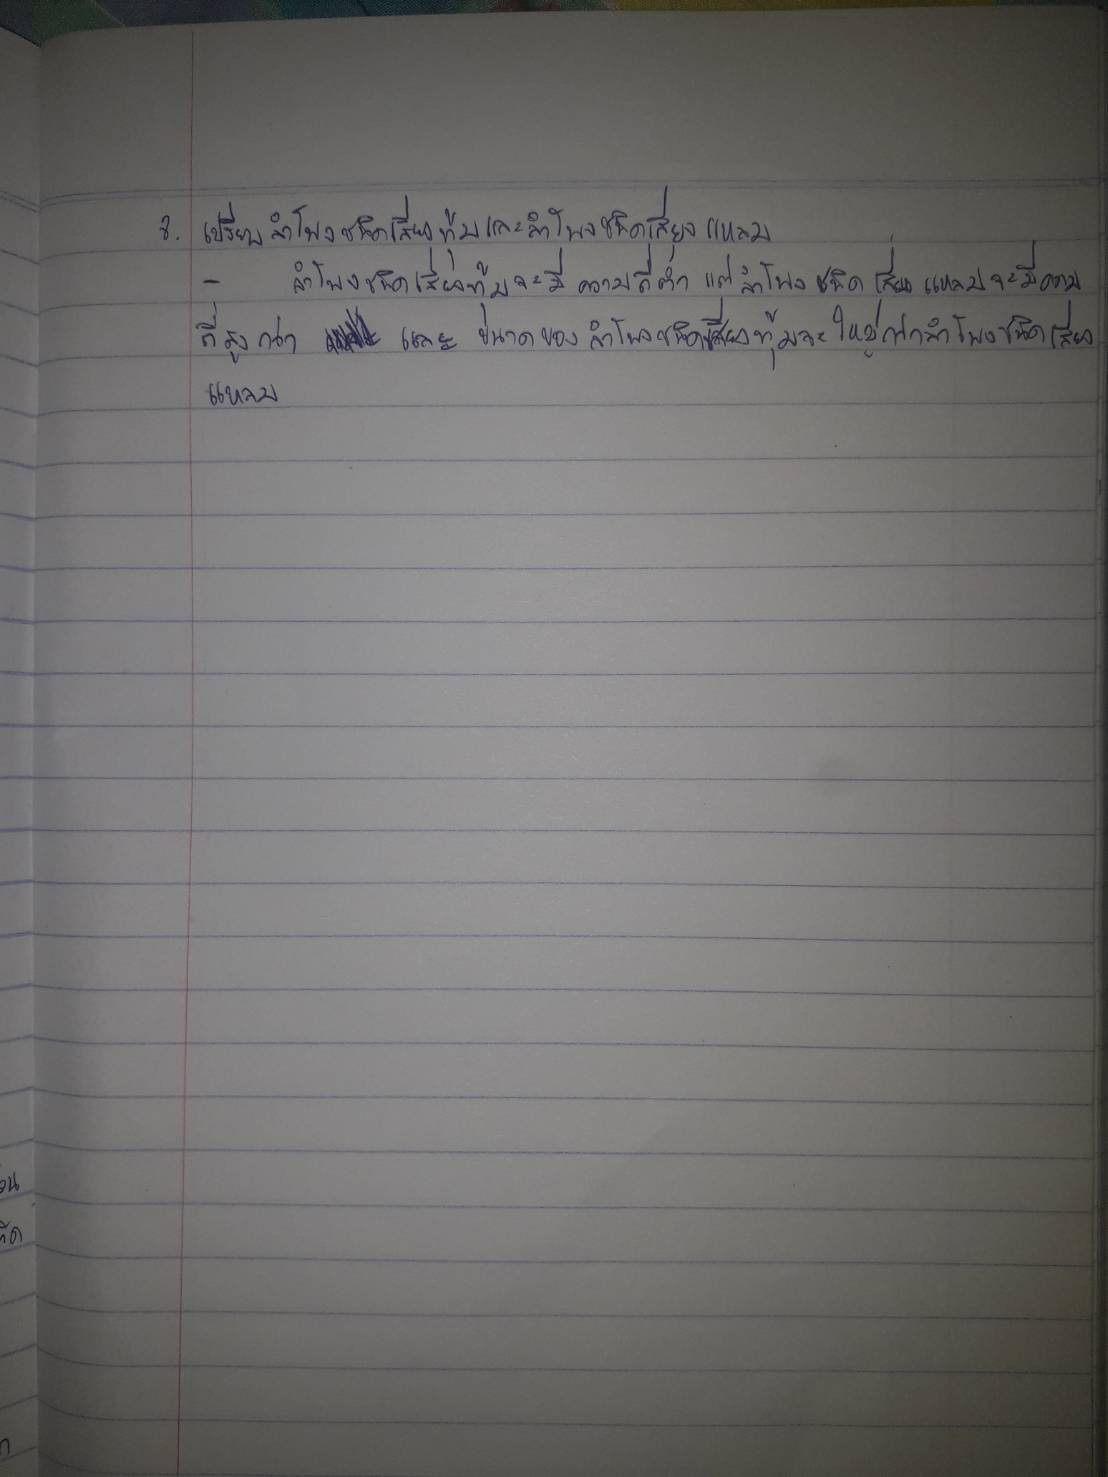 8. เปรียบลำโพงชนิดเสียงทุ้มและลำโพงชนิดเสียงแหลม
- ลำโพงชนิดเสียงทุ้มจะมีความถี่ต่ำ แต่ลำโพงชนิดเสียงแหลมจะมีความ
ถี่สูงกว่า และ ขนาดของลำโพงชนิดเสียงทุ้มจะใหญ่กว่าลำโพงชนิดเสียง
แหลม